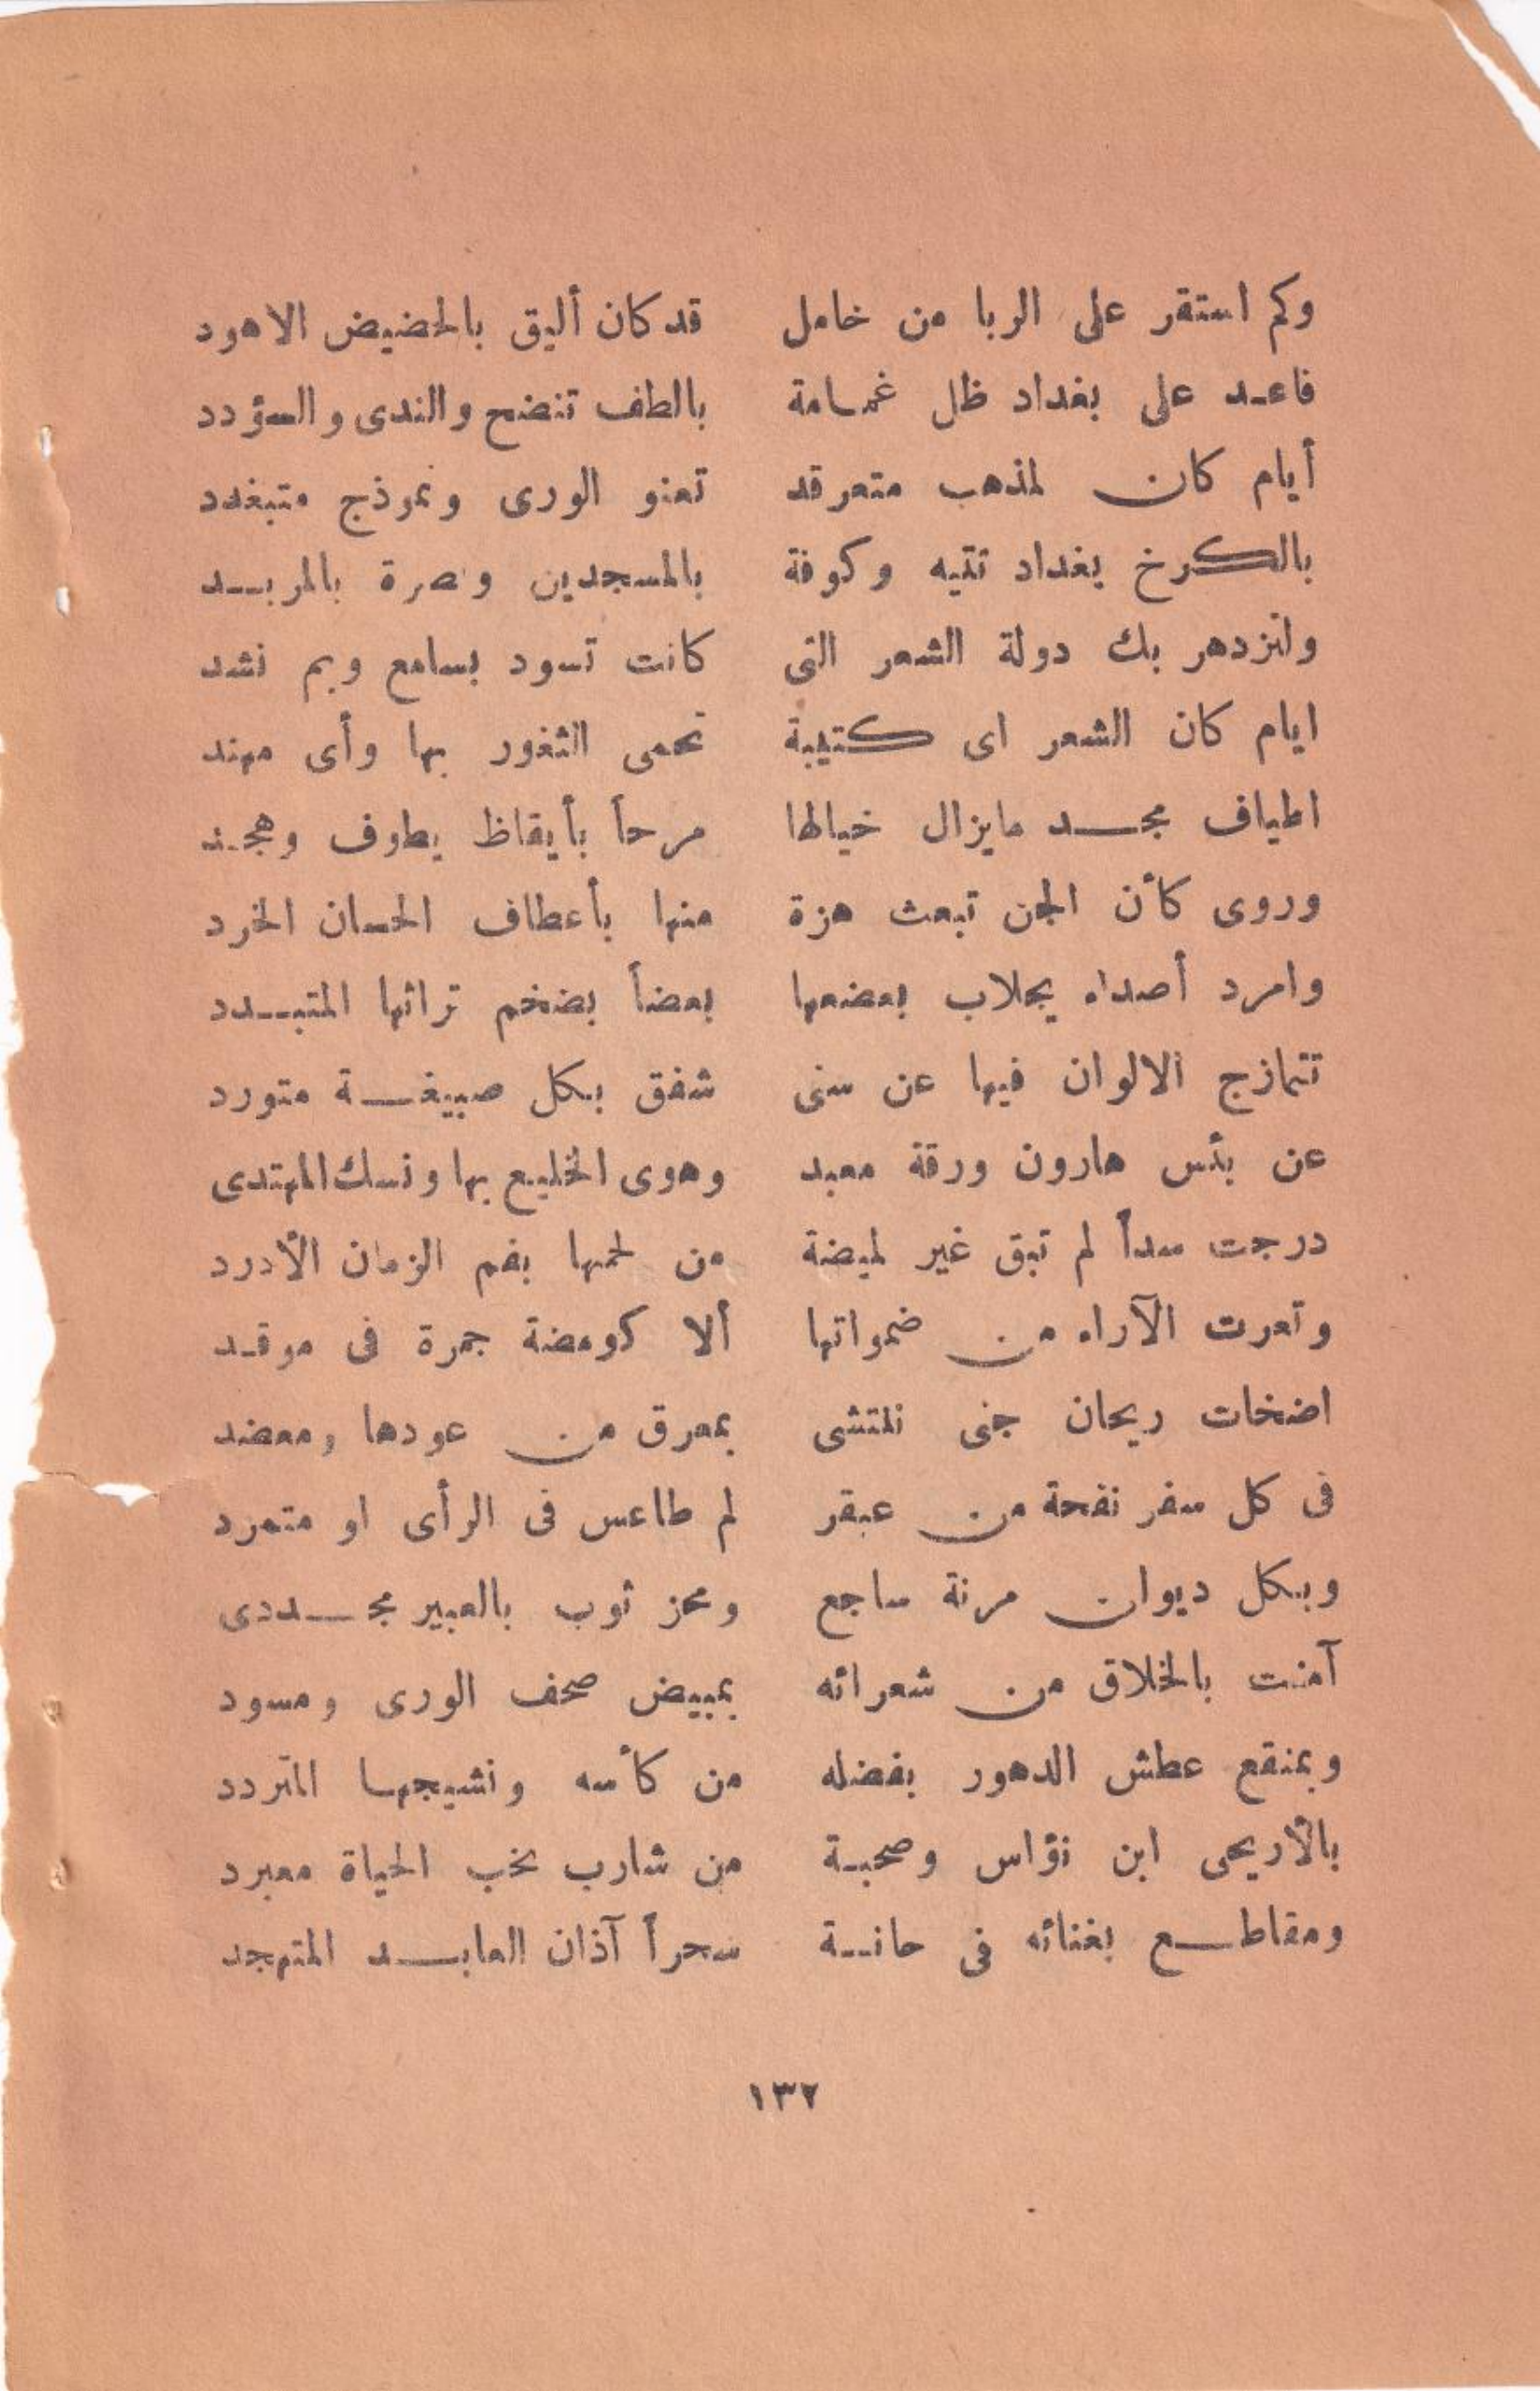 وكم استقر على الربا من خامل قد كان أليق بالحضيض الاهود
فاعد على بغداد ظل غمامة بالطف تنضح والندى والسؤدد
أيام كان لمذهب متعرقد تعنو الورى ونموذج متبغدد
بالكرخ بغداد تتيه وكوفة بالمسجدين وبصرة بالمربد
ولتزدهر بك دولة الشعر التى كانت تسود بسامع وبم نشد
ايام كان الشعر اى كتيبة تحمى الثغور بها وأى مهند
اطياف مجد مايزال خيالها مرحاً بأيقاظ يطوف وهجد
وروى كأن الجن تبعث هزة منها بأعطاف الحسان الخرد
وامرد أصداء يجلاب بعضها بعضاً بضخم تراثها المتبدد
تتمازج الالوان فيها عن سنى شفق بكل صبيغة متورد
عن بئس هارون ورقة معبد وهوى الخليع بها ونسك المهتدى
درجت سداً لم تبق غير لميضة من لحمها بفم الزمان الأدرد
وتعرت الآراء من ضمواتها ألا كومضة جمرة فى موقد
اضخات ريحان جنى نلتشى بمعرق من عودها ومعضد
فى كل سفر نفحة من عبقر لم طاعس فى الرأى او متمرد
وبكل ديوان مرنة ساجع ومحز ثوب بالعبير مجددى
آمنت بالخلاق من شعرائه بمبيض صحف الورى ومسود
وبمنقع عطش الدهور بفضله من كأسه ونشيجها المتردد
بالأريحى ابن نؤاس وصحبة من شارب نخب الحياة معبرد
ومقاطع بغنائه فى حانة سحراً آذان العابد المتهجد
١٣٢